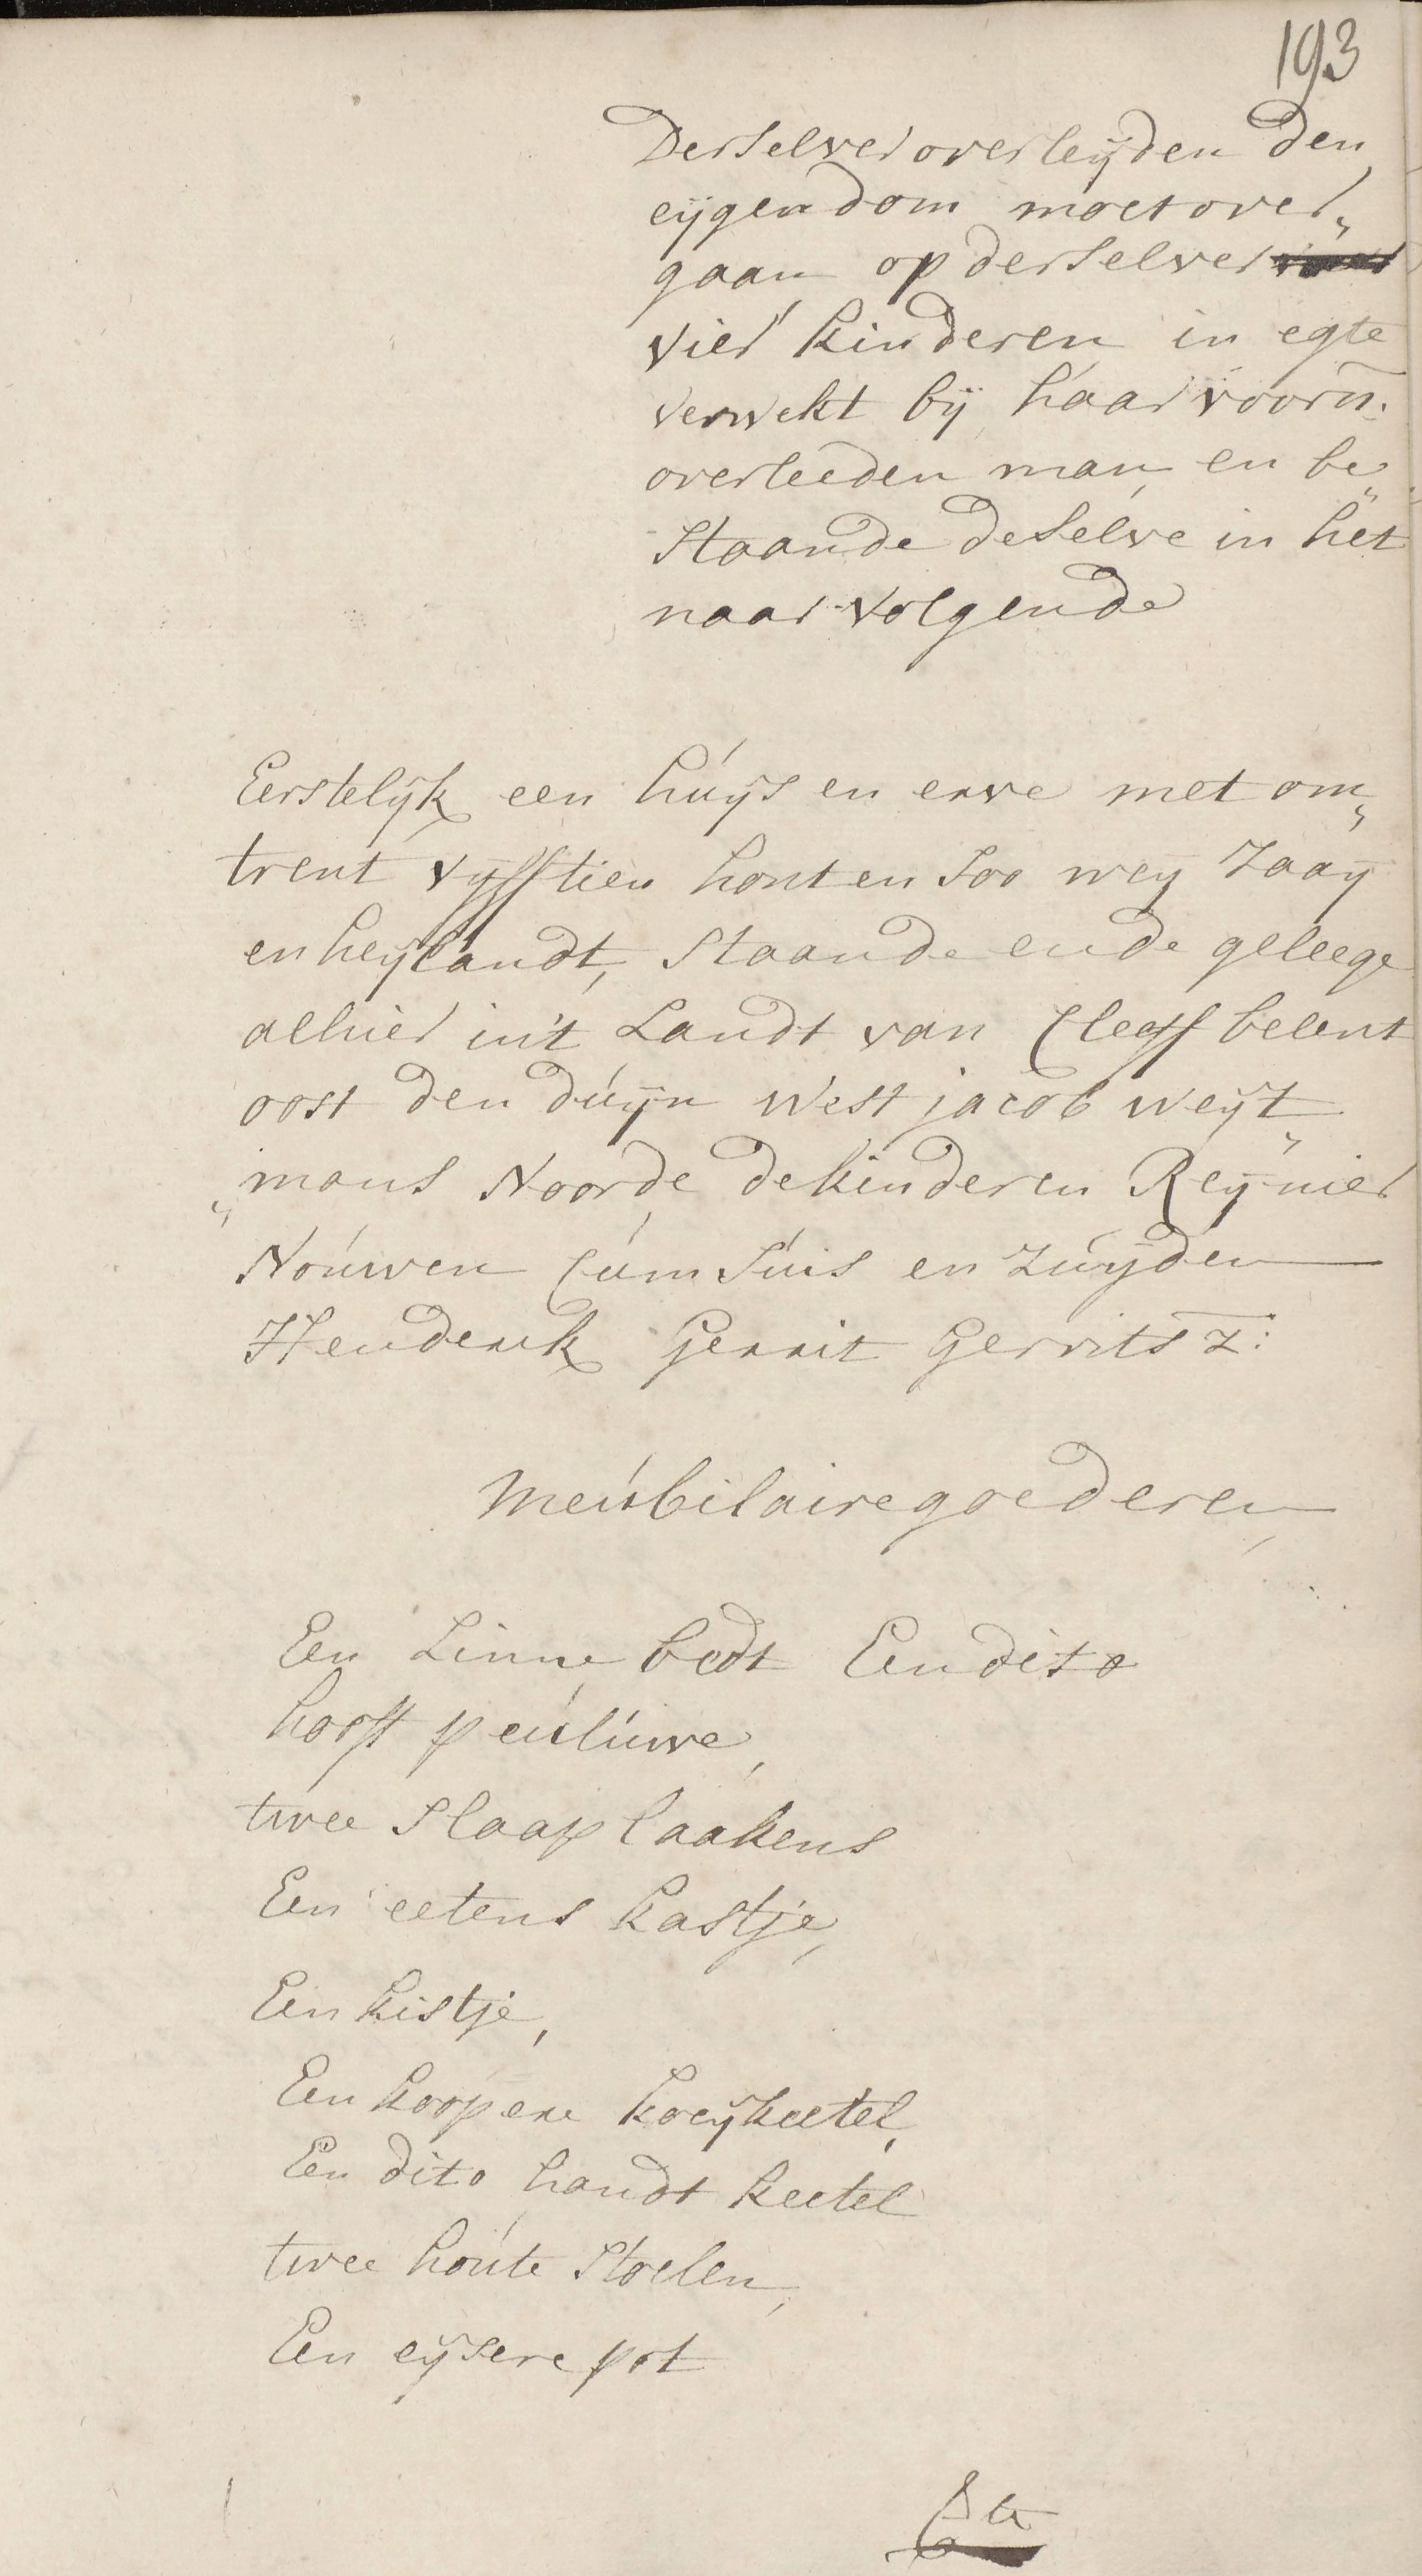 193
Derselver overleyden den
eygendom moet over„
gaan op derselver
vier kinderen in egte
verwekt bij haar voorn:
overleeden man en be„
staande deselve in het
naarvolgende
Eerstelijk een huijs en erve met om„
trent vijfftien hont en soo wey zaay
en heylandt, staande ende geleege
alhier in't Landt van Cleeff belent
oost den duijn west jacob weyt„
„mans Noorde de kinderen Reynier
Nouwen Cum suis en zuyden
Henderik Gerrit Gerrits z:
Meubilaire goederen
Een Linne bedt Een dito
hooft peuluwe,
twee slaaplaakens
Een eetens kastje,
Een kistje,
Een koopere koeyketel,
Een dito handt keetel
twee houte stoelen,
Een eysere pot